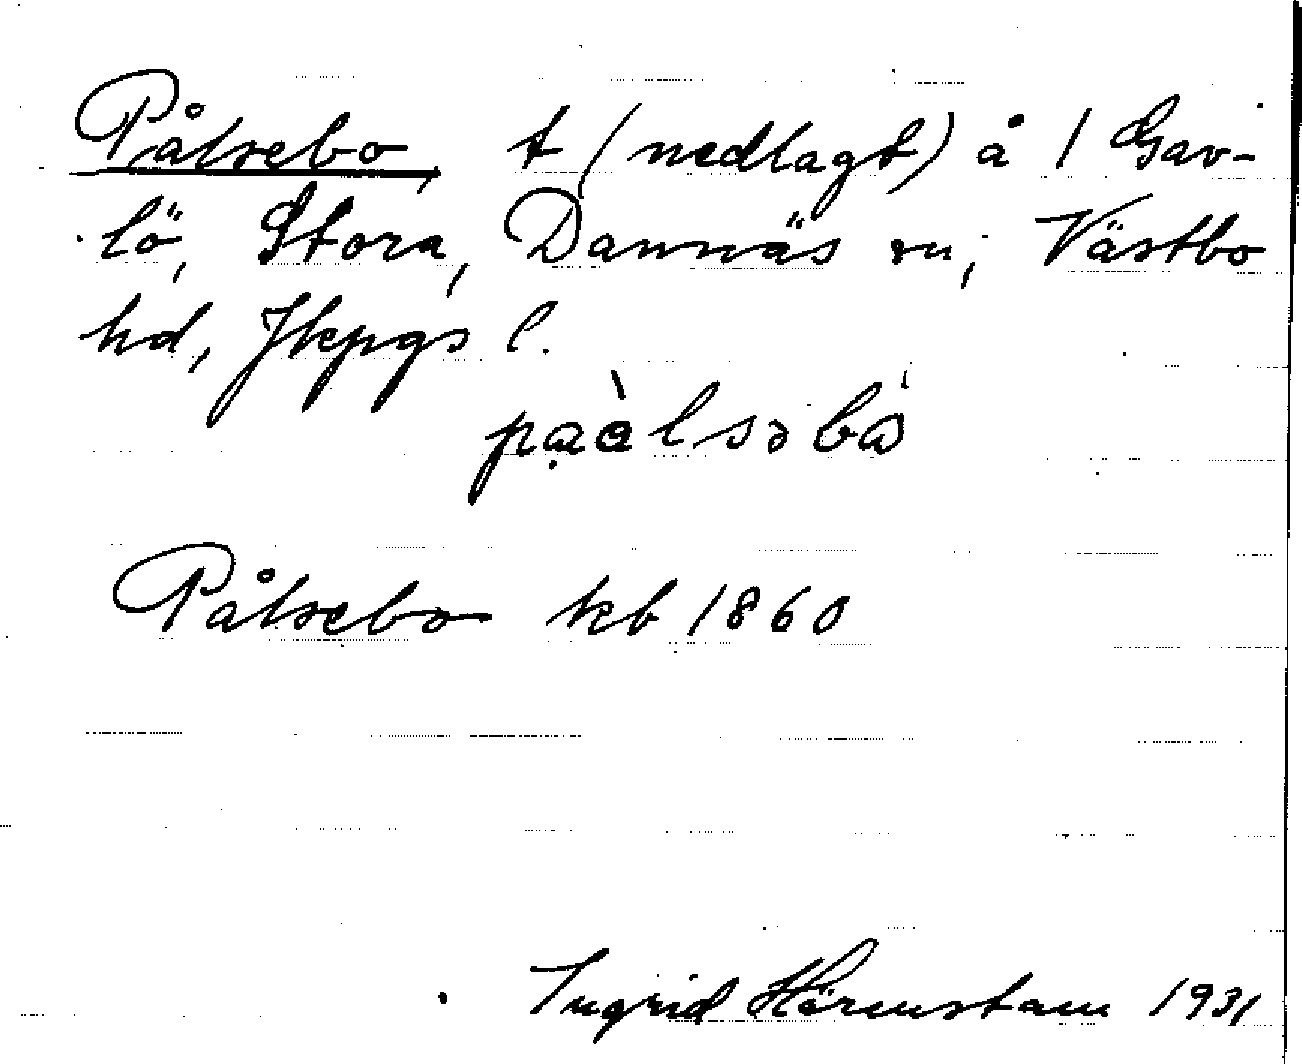 Pålsebo, t (nedlagt) å 1 Gav-
lö, Stora, Dannäs sn, Västbo
hd, Jkpgs l.
Pålsebo kb 1860
Ingrid Härenstam 1931